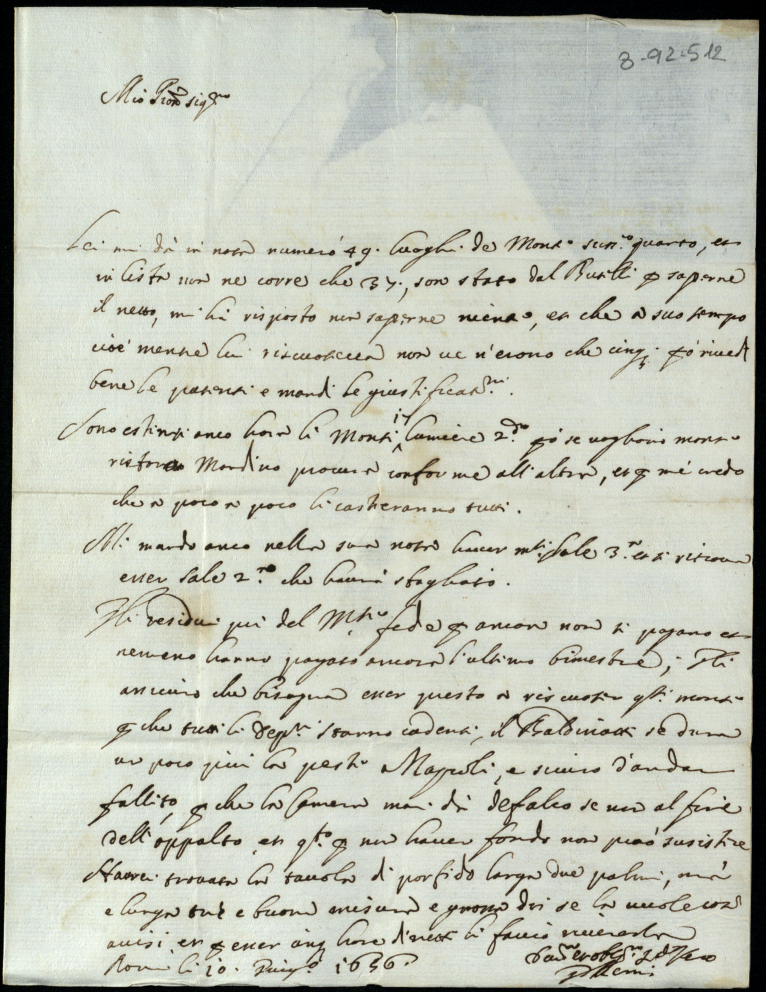 8-92-512
Mio Pron sigre
Lei mi dà in nota numero 49. luoghi de Monte quarto, et
in lista non ne corre che 37, son stato dal Buselli p saperne
il netto, mi ha risposto non saperne niente, et che a suo tempo
cioè mentre lui riscuoteva non ve n'erono che cinq; però rivedi
bene le patenti e mandi le giustificatni.
Sono estinti anco hora li Monti lumiere 2do però se vogliono
ristoro Mandino procura conforme all'altra, et p me credo
che a poco a poco li casteranno tutti.
Mi mando anco nella sua nota haver mti Sale 3ro et si riscuo
esser sale 2ro che haverà sbagliato.
Gli residui poi del Mti fede p ancora non si pagano et
nemeno hanno pagato ancora l'ultimo bimestre; Gli
assicuro che bisogna esser presto a riscuoter qti monti
p che tutti li stanno cadenti, il Baldinotti se dura
un poco più la peste a Napoli, e sicuro d'andar
fallito, p che la Camera mai dà defalco se non al fine
dell'oppalto, et qto p non haver fondo non può susistere
Haverei trovata la tavola di porfido larga due palmi, mà
e lunga trè e buona misura e grossa se la vuole
avisi et p esser li faccio riverenza
Roma li 10. 1656.